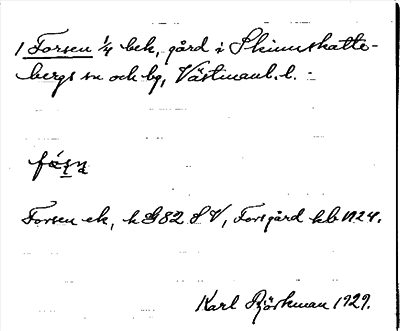 1 Forsen ¼ bek, gård i Skinnskatte-
bergs sn och bg, Västmanl. l. -
fásn
Forsen ek, h G82 SV, Forsgård hb 1724.
Karl Björkman 1929.